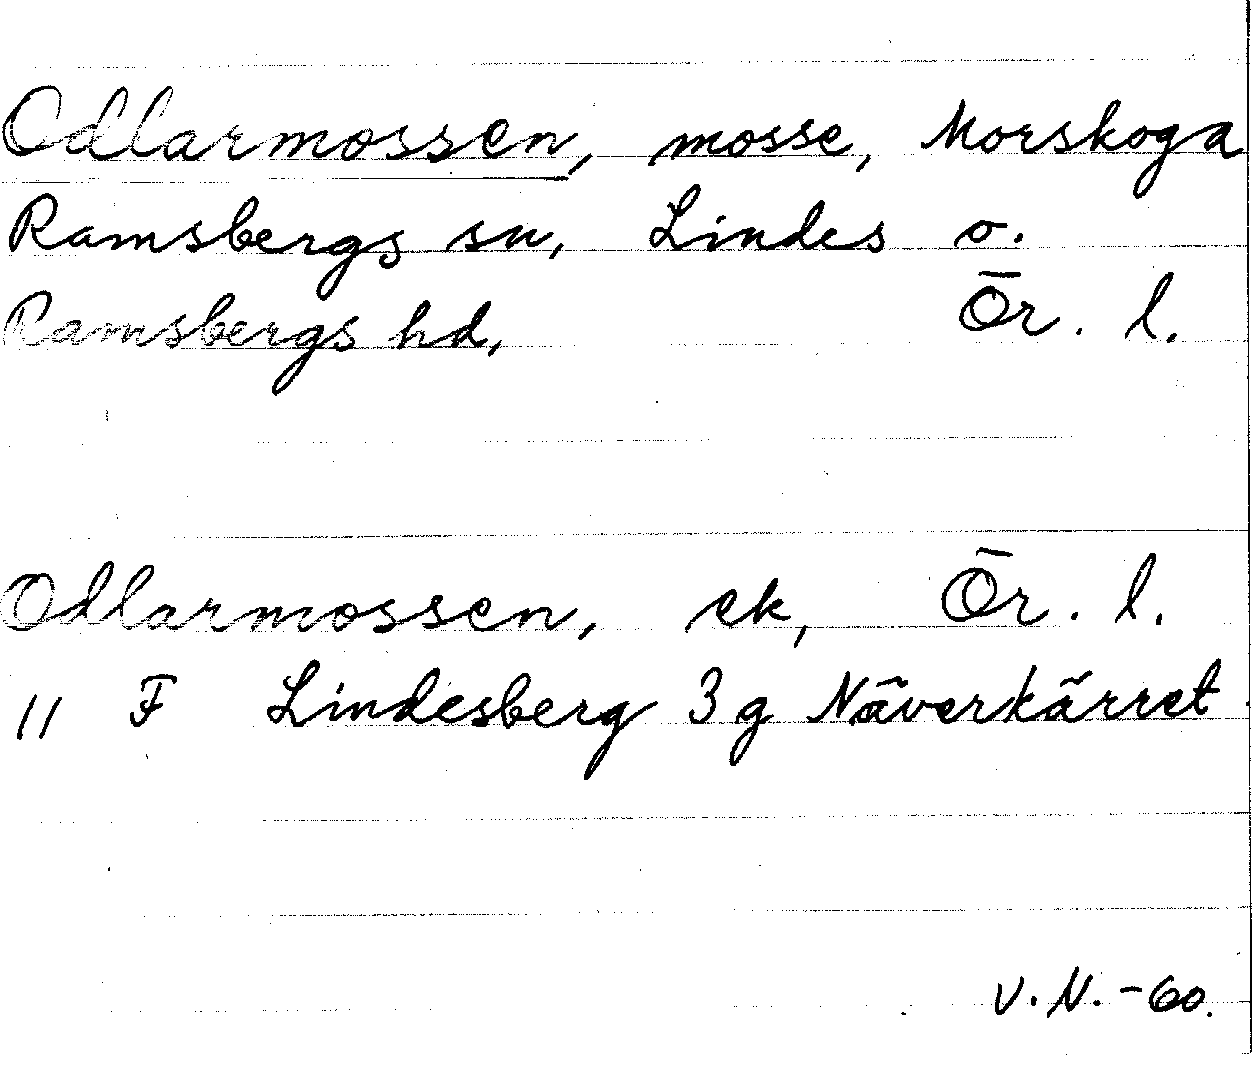 Odlarmossen, mosse, Morskoga
Ramsbergs sn, Lindes o.
Ramsbergs hd, Ör. l.
Odlarmossen, ek, Ör. l.
11 F Lindesberg 3 g Näverkärret
V.N. -60.